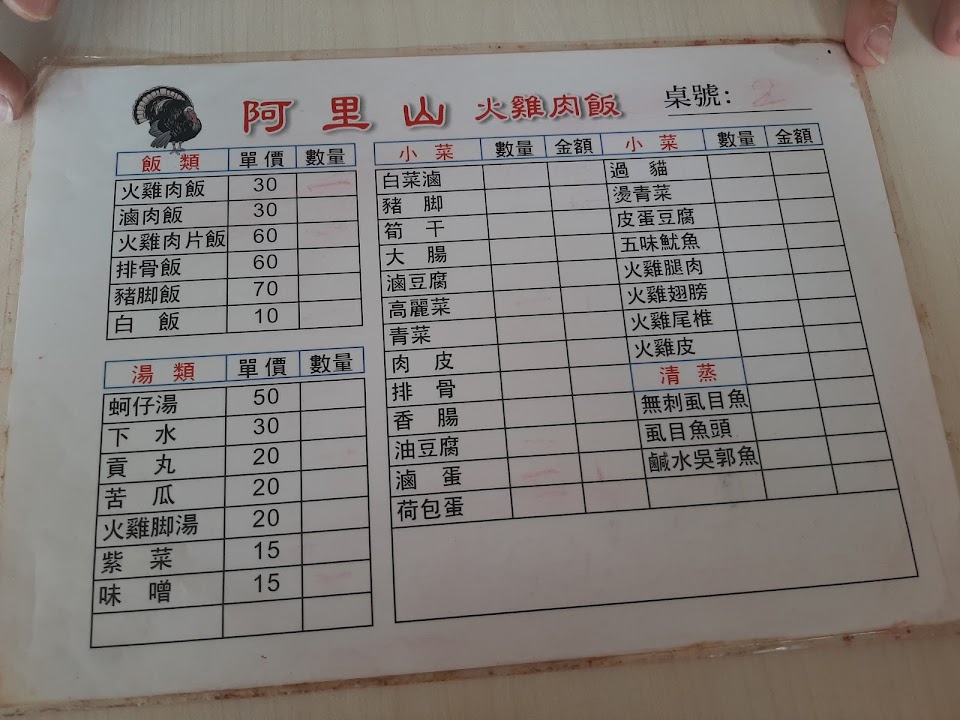 阿里山 火雞肉飯 桌號: 2
飯類 單價 數量
火雞肉飯 30
滷肉飯 30
火雞肉片飯 60
排骨飯 60
豬脚飯 70
白飯 10
湯類 單價 數量
蚵仔湯 50
下水 30
貢丸 20
苦瓜 20
火雞脚湯 20
紫菜 15
味噌 15
小菜 數量 金額
白菜滷
豬脚
筍干
大腸
滷豆腐
高麗菜
青菜
肉皮
排骨
香腸
油豆腐
滷蛋
荷包蛋
小菜 數量 金額
過貓
燙青菜
皮蛋豆腐
五味魷魚
火雞腿肉
火雞翅膀
火雞尾椎
火雞皮
清蒸
無刺虱目魚
虱目魚頭
鹹水吳郭魚